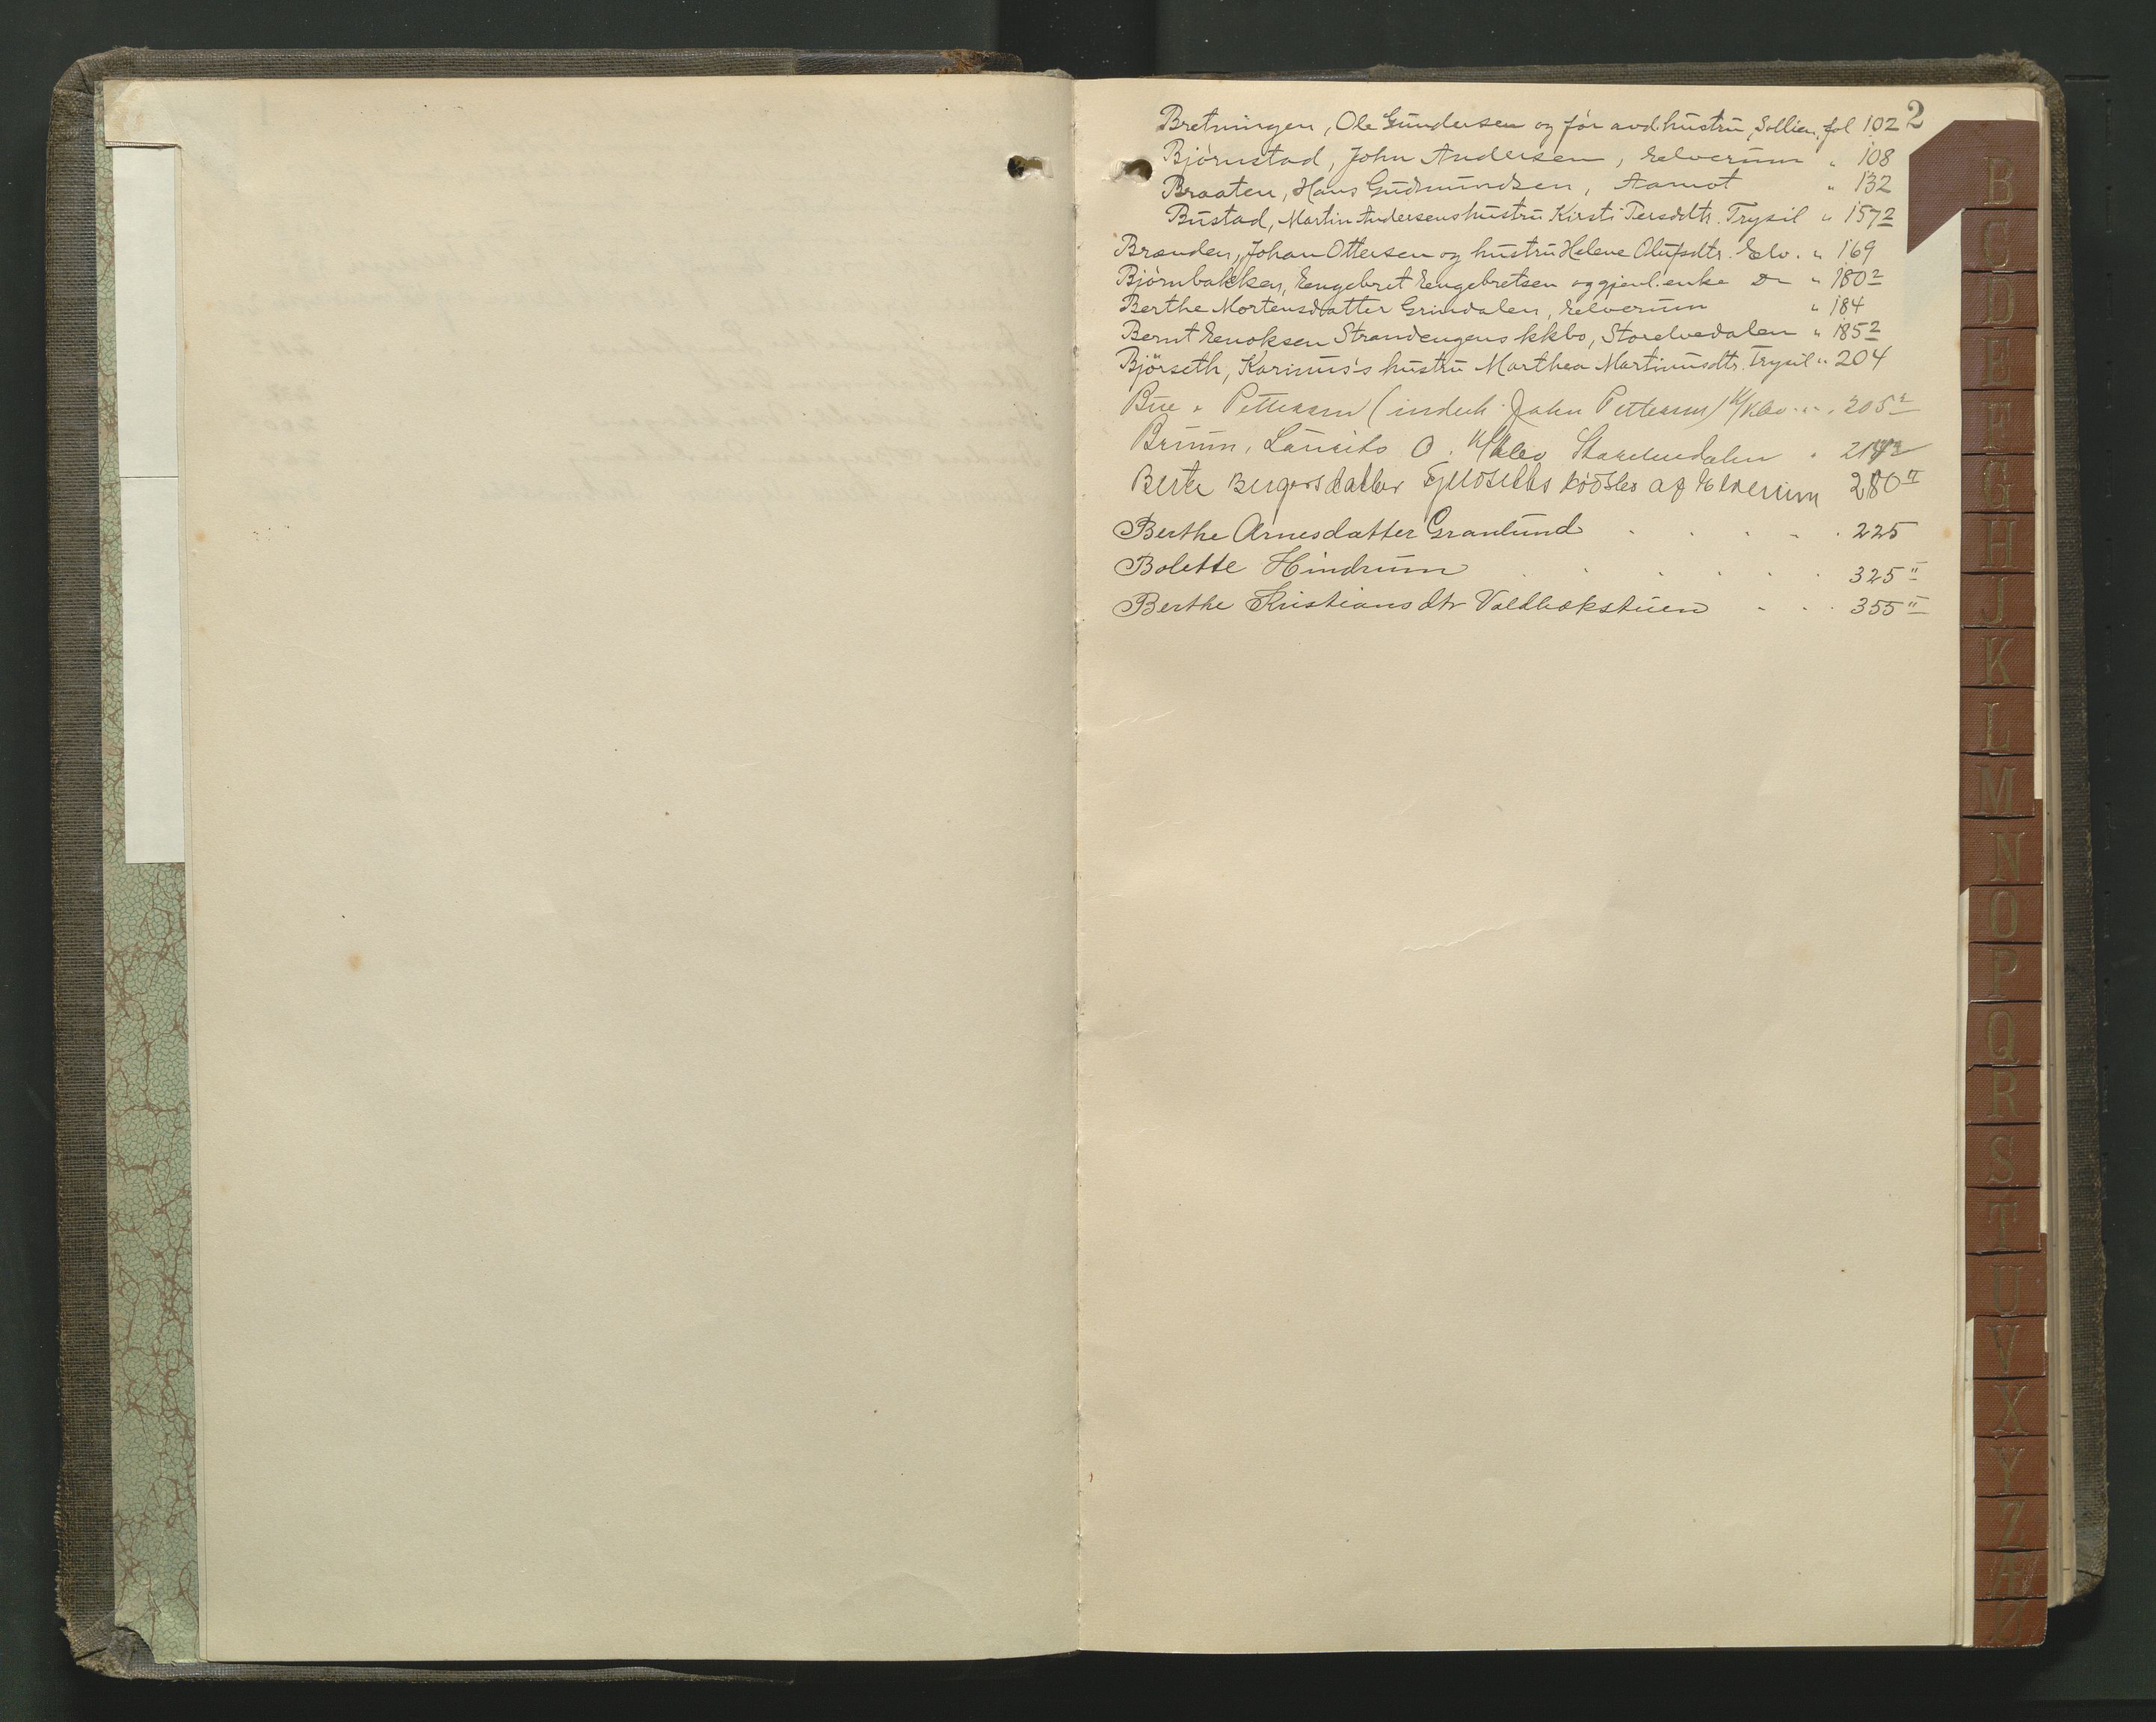 2
Bretningen, Ole Gundersen og før avd. hustru, Sollien, fol 102
Bjørnstad, John Andersen, Elverum " 108
Braaten, Hans Gudmundsen, Aamot " 132
Bustad, Martin Andersens hustru Kirsti Persdtr. Trysil " 157 2
Brænden, Johan Ottersen og hustru Helene Olufsdtr. Elv. " 169
Bjørnbakken, Engebret Engebretsen og gjenl. enke Do " 180 2
Berthe Mortensdatter Grindalen, Elverum " 184
Bernt Enoksen Strandengens kkbo, Storelvedalen " 185 2
Bjørseth, Karinus's hustru Marthea Martinusdtr. Trysil " 204
Bue & Pettersen (indeh. John Pettersen) k/kbo " " 205 2
Bruun, Lauritz O. Storelvedalen "
Berte Bergersdatter af Elverum 280 II
Berthe Arnesdatter Granlund . . . . . 225
Bolette Hindrum . . . . . . 325 II
Berthe Kristiansdtr Voldbækstuen . . . 355 II
B
C
D
E
F
G
H
J
K
L
M
N
O
P
Q
R
S
T
U
V
X
Y
Z
Æ